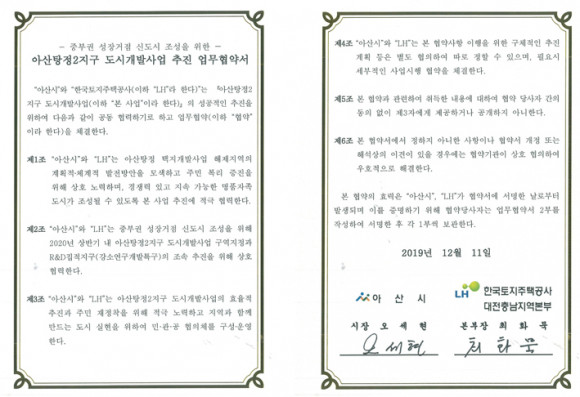 - 중부권 성장거점 신도시 조성을 위한 -
아산탕정2지구 도시개발사업 추진 업무협약서
"아산시"와 "한국토지주택공사(이하 "LH"라 한다)"는 『아산탕정2
지구 도시개발사업(이하 "본 사업"이라 한다)』의 성공적인 추진을
위하여 다음과 같이 공동 협력하기로 하고 업무협약(이하 "협약"
이라 한다)을 체결한다.
제1조 "아산시"와 "LH"는 아산탕정 택지개발사업 해제지역의
계획적·체계적 발전방안을 모색하고 주민 복리 증진을
위해 상호 노력하며, 경쟁력 있고 지속 가능한 명품자족
도시가 조성될 수 있도록 본 사업 추진에 적극 협력한다.
제2조 "아산시"와 "LH"는 중부권 성장거점 신도시 조성을 위해
2020년 상반기 내 아산탕정2지구 도시개발사업 구역지정과
R&D집적지구(강소연구개발특구)의 조속 추진을 위해 상호
협력한다.
제3조 "아산시"와 "LH"는 아산탕정2지구 도시개발사업의 효율적
추진과 주민 재정착을 위해 적극 노력하고 지역과 함께
만드는 도시 실현을 위하여 민·관·공 협의체를 구성·운영
한다.
제4조 "아산시"와 "LH"는 본 협약사항 이행을 위한 구체적인 추진
계획 등은 별도 협의하여 따로 정할 수 있으며, 필요시
세부적인 사업시행 협약을 체결한다.
제5조 본 협약과 관련하여 취득한 내용에 대하여 협약 당사자 간의
동의 없이 제3자에게 제공하거나 공개하지 아니한다.
제6조 본 협약서에서 정하지 아니한 사항이나 협약서 개정 또는
해석상의 이견이 있을 경우에는 협약기관이 상호 협의하여
우호적으로 해결한다.
본 협약의 효력은 "아산시", "LH"가 협약서에 서명한 날로부터
발생되며 이를 증명하기 위해 협약당사자는 업무협약서 2부를
작성하여 서명한 후 각 1부씩 보관한다.
2019년 12월 11일
아산시
시장 오세현
오세현
LH 한국토지주택공사
대전충남지역본부
본부장 최화묵
최화묵